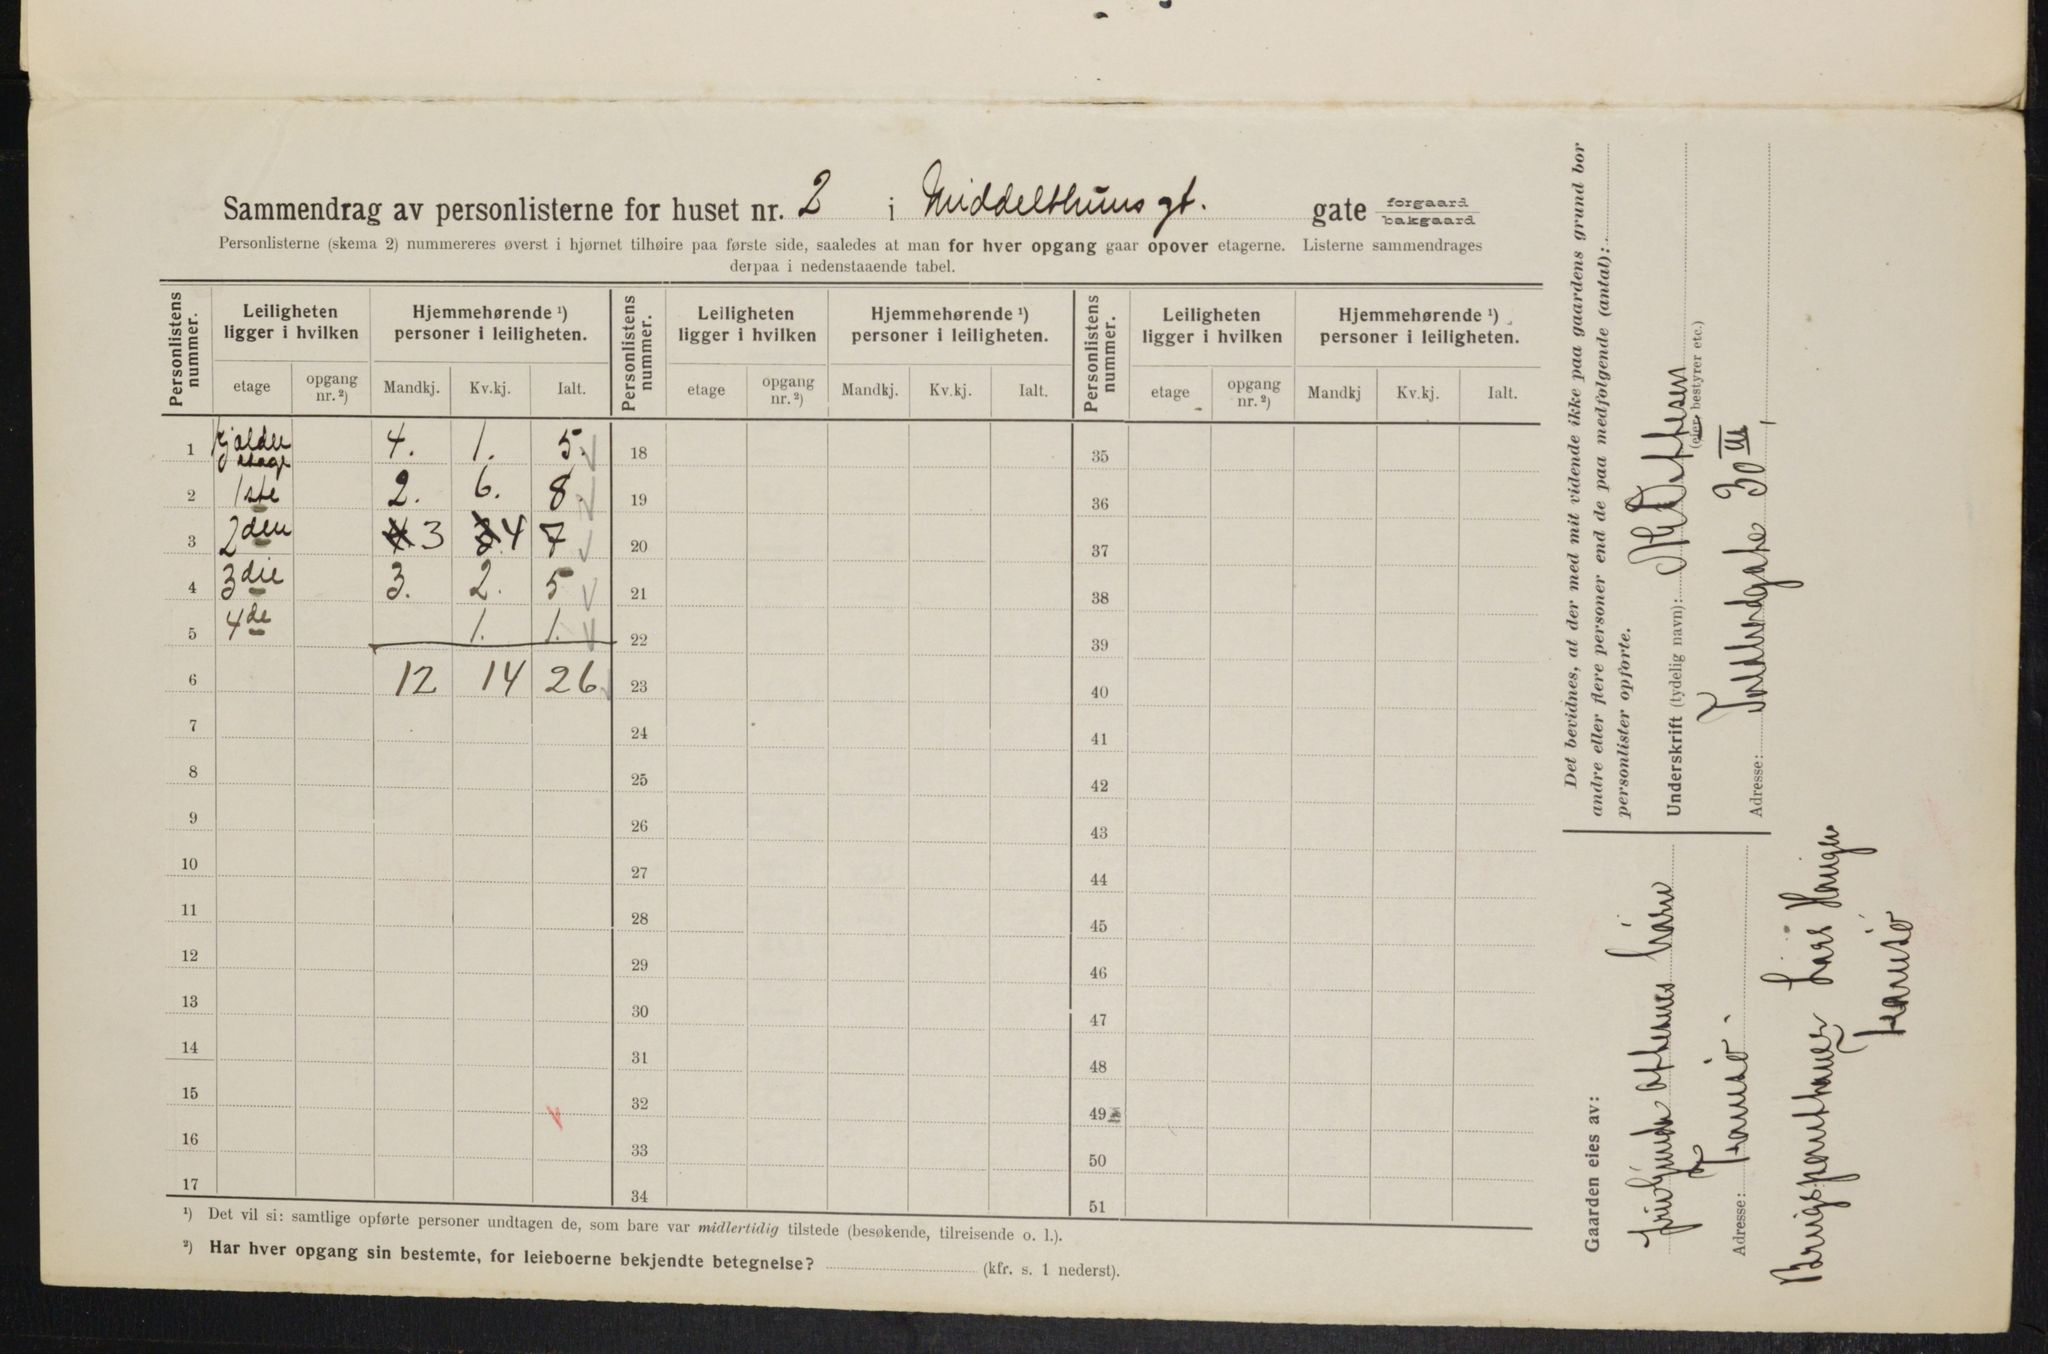 Sammendrag av personlisterne for huset nr. 2 i Middelthuns gt. gate forgaard bakgaard
Personlisterne (skema 2) nummereres øverst i hjørnet tilhøire paa første side, saaledes at man for hver opgang gaar opover etagerne. Listerne sammendrages
derpaa i nedenstaaende tabel.
Personlistens nummer. Leiligheten ligger i hvilken Hjemmehørende ¹) personer i leiligheten. Personlistens nummer. Leiligheten ligger i hvilken Hjemmehørende ¹) personer i leiligheten. Personlistens nummer. Leiligheten ligger i hvilken Hjemmehørende ¹) personer i leiligheten.
etage opgang nr. ²) Mandkj. Kv.kj. Ialt. etage opgang nr. ²) Mandkj. Kv.kj. Ialt. etage opgang nr. ²) Mandkj Kv.kj. Ialt.
1 kjælder etage 4. 1. 5. 18 35
2 1ste 2. 6. 8. 19 36
3 2den 3 4 7 20 37
4 3die 3. 2. 5 21 38
5 4de 1. 1. 22 39
6 12 14 26 23 40
7 24 41
8 25 42
9 26 43
10 27 44
11 28 45
12 29 46
13 30 47
14 31 48
15 32 49
16 33 50
17 34 51
¹) Det vil si: samtlige opførte personer undtagen de, som bare var midlertidig tilstede (besøkende, tilreisende o. l.).
²) Har hver opgang sin bestemte, for leieboerne bekjendte betegnelse? (kfr. s. 1 nederst).
Det bevidnes, at der med mit vidende ikke paa gaardens grund bor
andre eller flere personer end de paa medfølgende (antal):
personlister opforte.
Underskrift (tydelig navn):
(eier, bestyrer etc.)
Adresse: 30 III
Gaarden eies av:
Adresse: Tromsø.
Lars Hansen
Tromsø